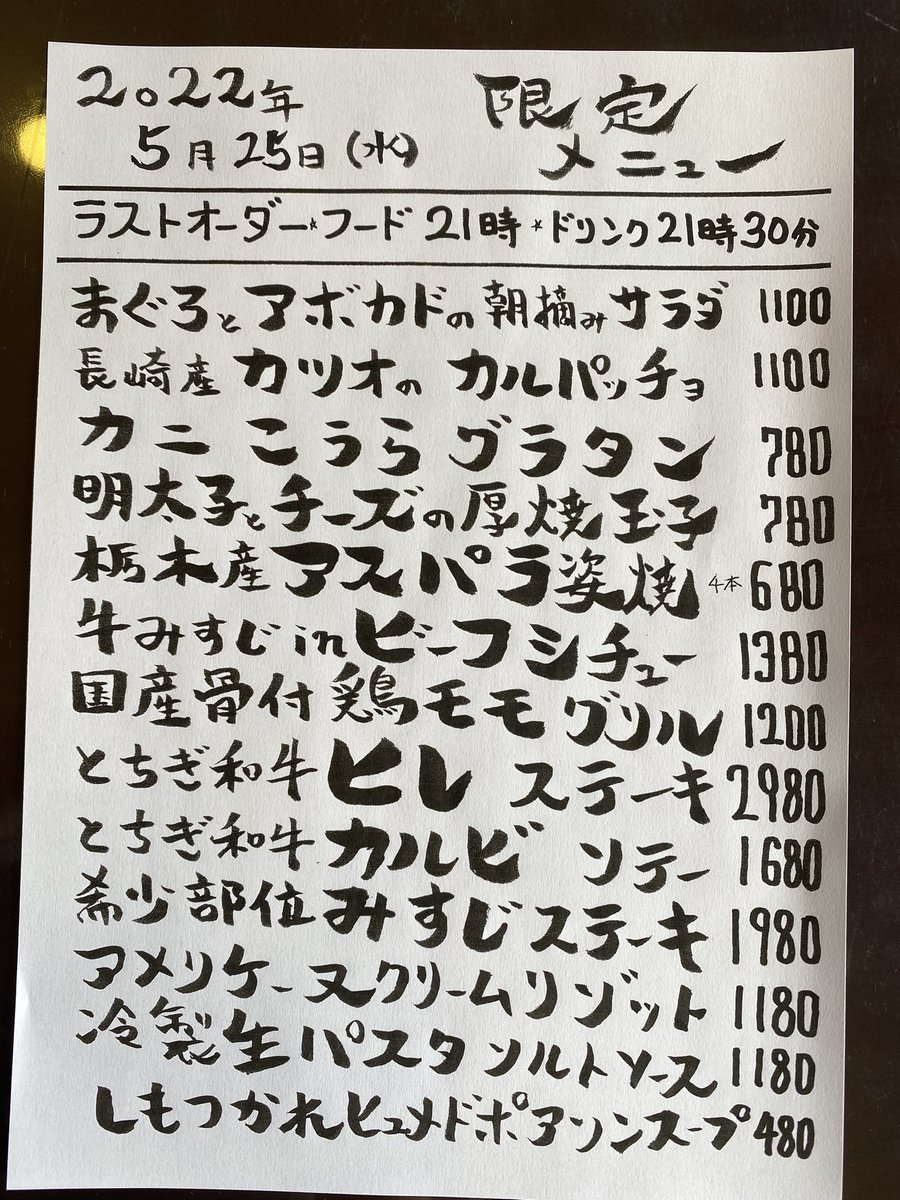 2022年 限定
5月25日(水) メニュー
ラストオーダー★フード21時★ドリンク21時30分
まぐろとアボカドの朝摘みサラダ 1100
長崎産カツオのカルパッチョ 1100
カニこうらグラタン 780
明太子とチーズの厚焼玉子 780
栃木産アスパラ姿焼 4本 680
牛みすじinビーフシチュー 1380
国産骨付鶏モモグリル 1200
とちぎ和牛ヒレステーキ 2980
とちぎ和牛カルビソテー 1680
希少部位みすじステーキ 1980
アメリケーヌクリームリゾット 1180
冷製生パスタソルトソース 1180
しもつかれヒュメドポアソンスープ 480